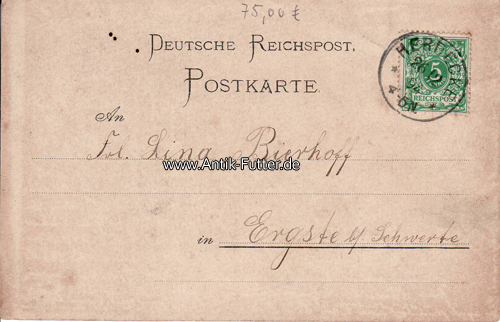 75,00 €
DEUTSCHE REICHSPOST.
POSTKARTE
5
REICHSPOST
An
Frl. Lina Bierhoff
www.Antik-Futter.de
in Ergste b/ Schwerte